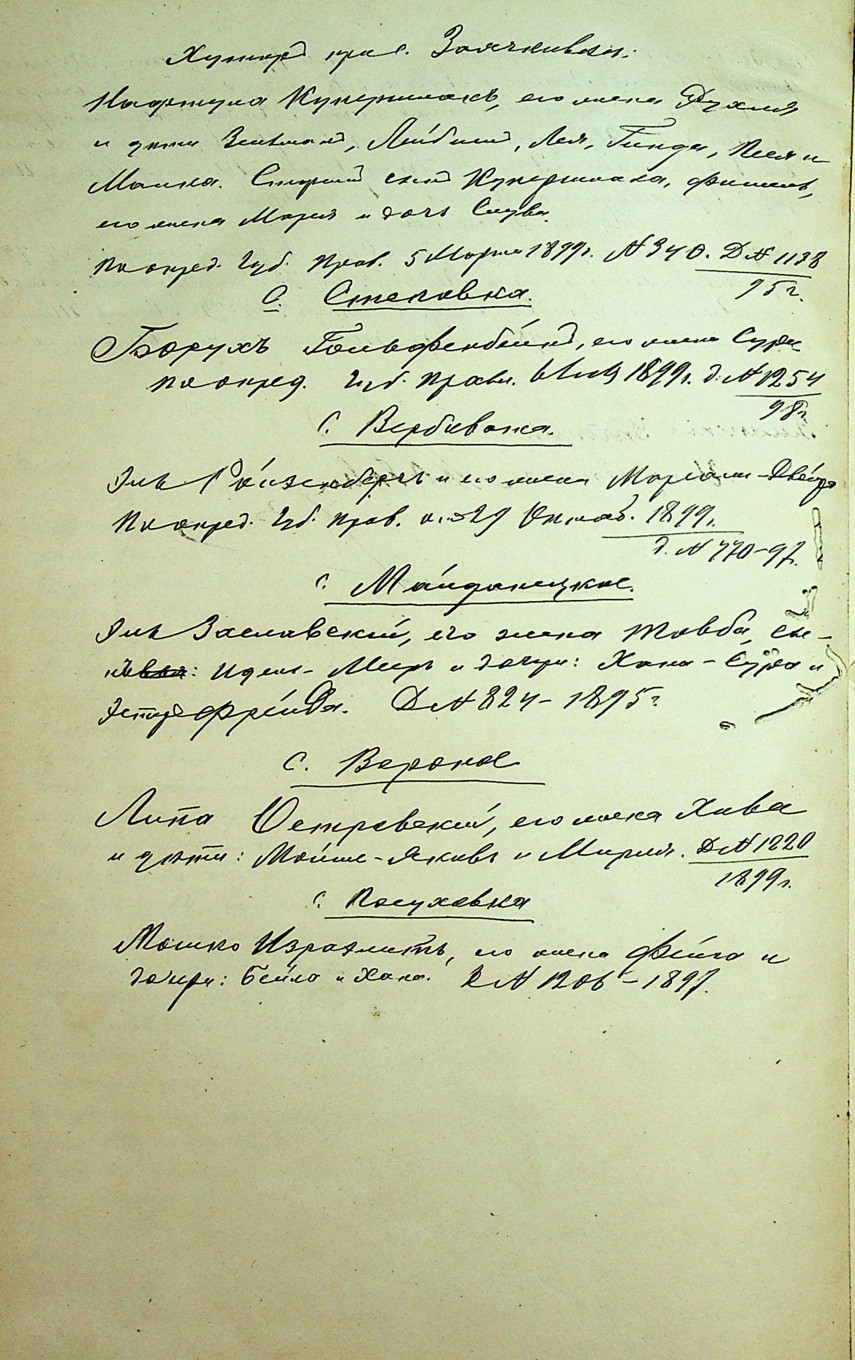 Хуторъ при с. Заячковки:
Нафтула Купершлакъ, его жена Рухля
и дети Зельманъ, Лейбишъ, Лея, Гинда, Песя и
Малка. Старшій сынъ Купершлака, Фишель,
его жена Марья и дочь Слува.
По опред. Губ. Прав. 5 Марта 1899г. № 340. Д № 1138
95 г.
С. Степовка.
Борухъ Гольдфенбейнъ, его жена Сура
по опред. Губ. Правл. 1899г. д. № 1254
98 г.
С. Вербивока.
Эль Ройзенбергъ и его жена Марьям-Двейра
По опред. Губ. Прав. 29 Октяб. 1899г.
д. № 770-97.
с. Майданецкое.
Эль Заславскій, его жена Товба, сы-
нъ: Идель-Меиръ и дочери: Хана-Сура и
Эстер Фрейда. Д № 824-1895 г
С. Вороное
Липа Островскій, его жена Хива
и дети: Мойше-Яковъ и Мирия. Д № 1220
1899г.
с. Посуховка
Мошко Израэлитъ, его жена Фейга и
дочери: Бейла и Хана. Д № 1206-1897.